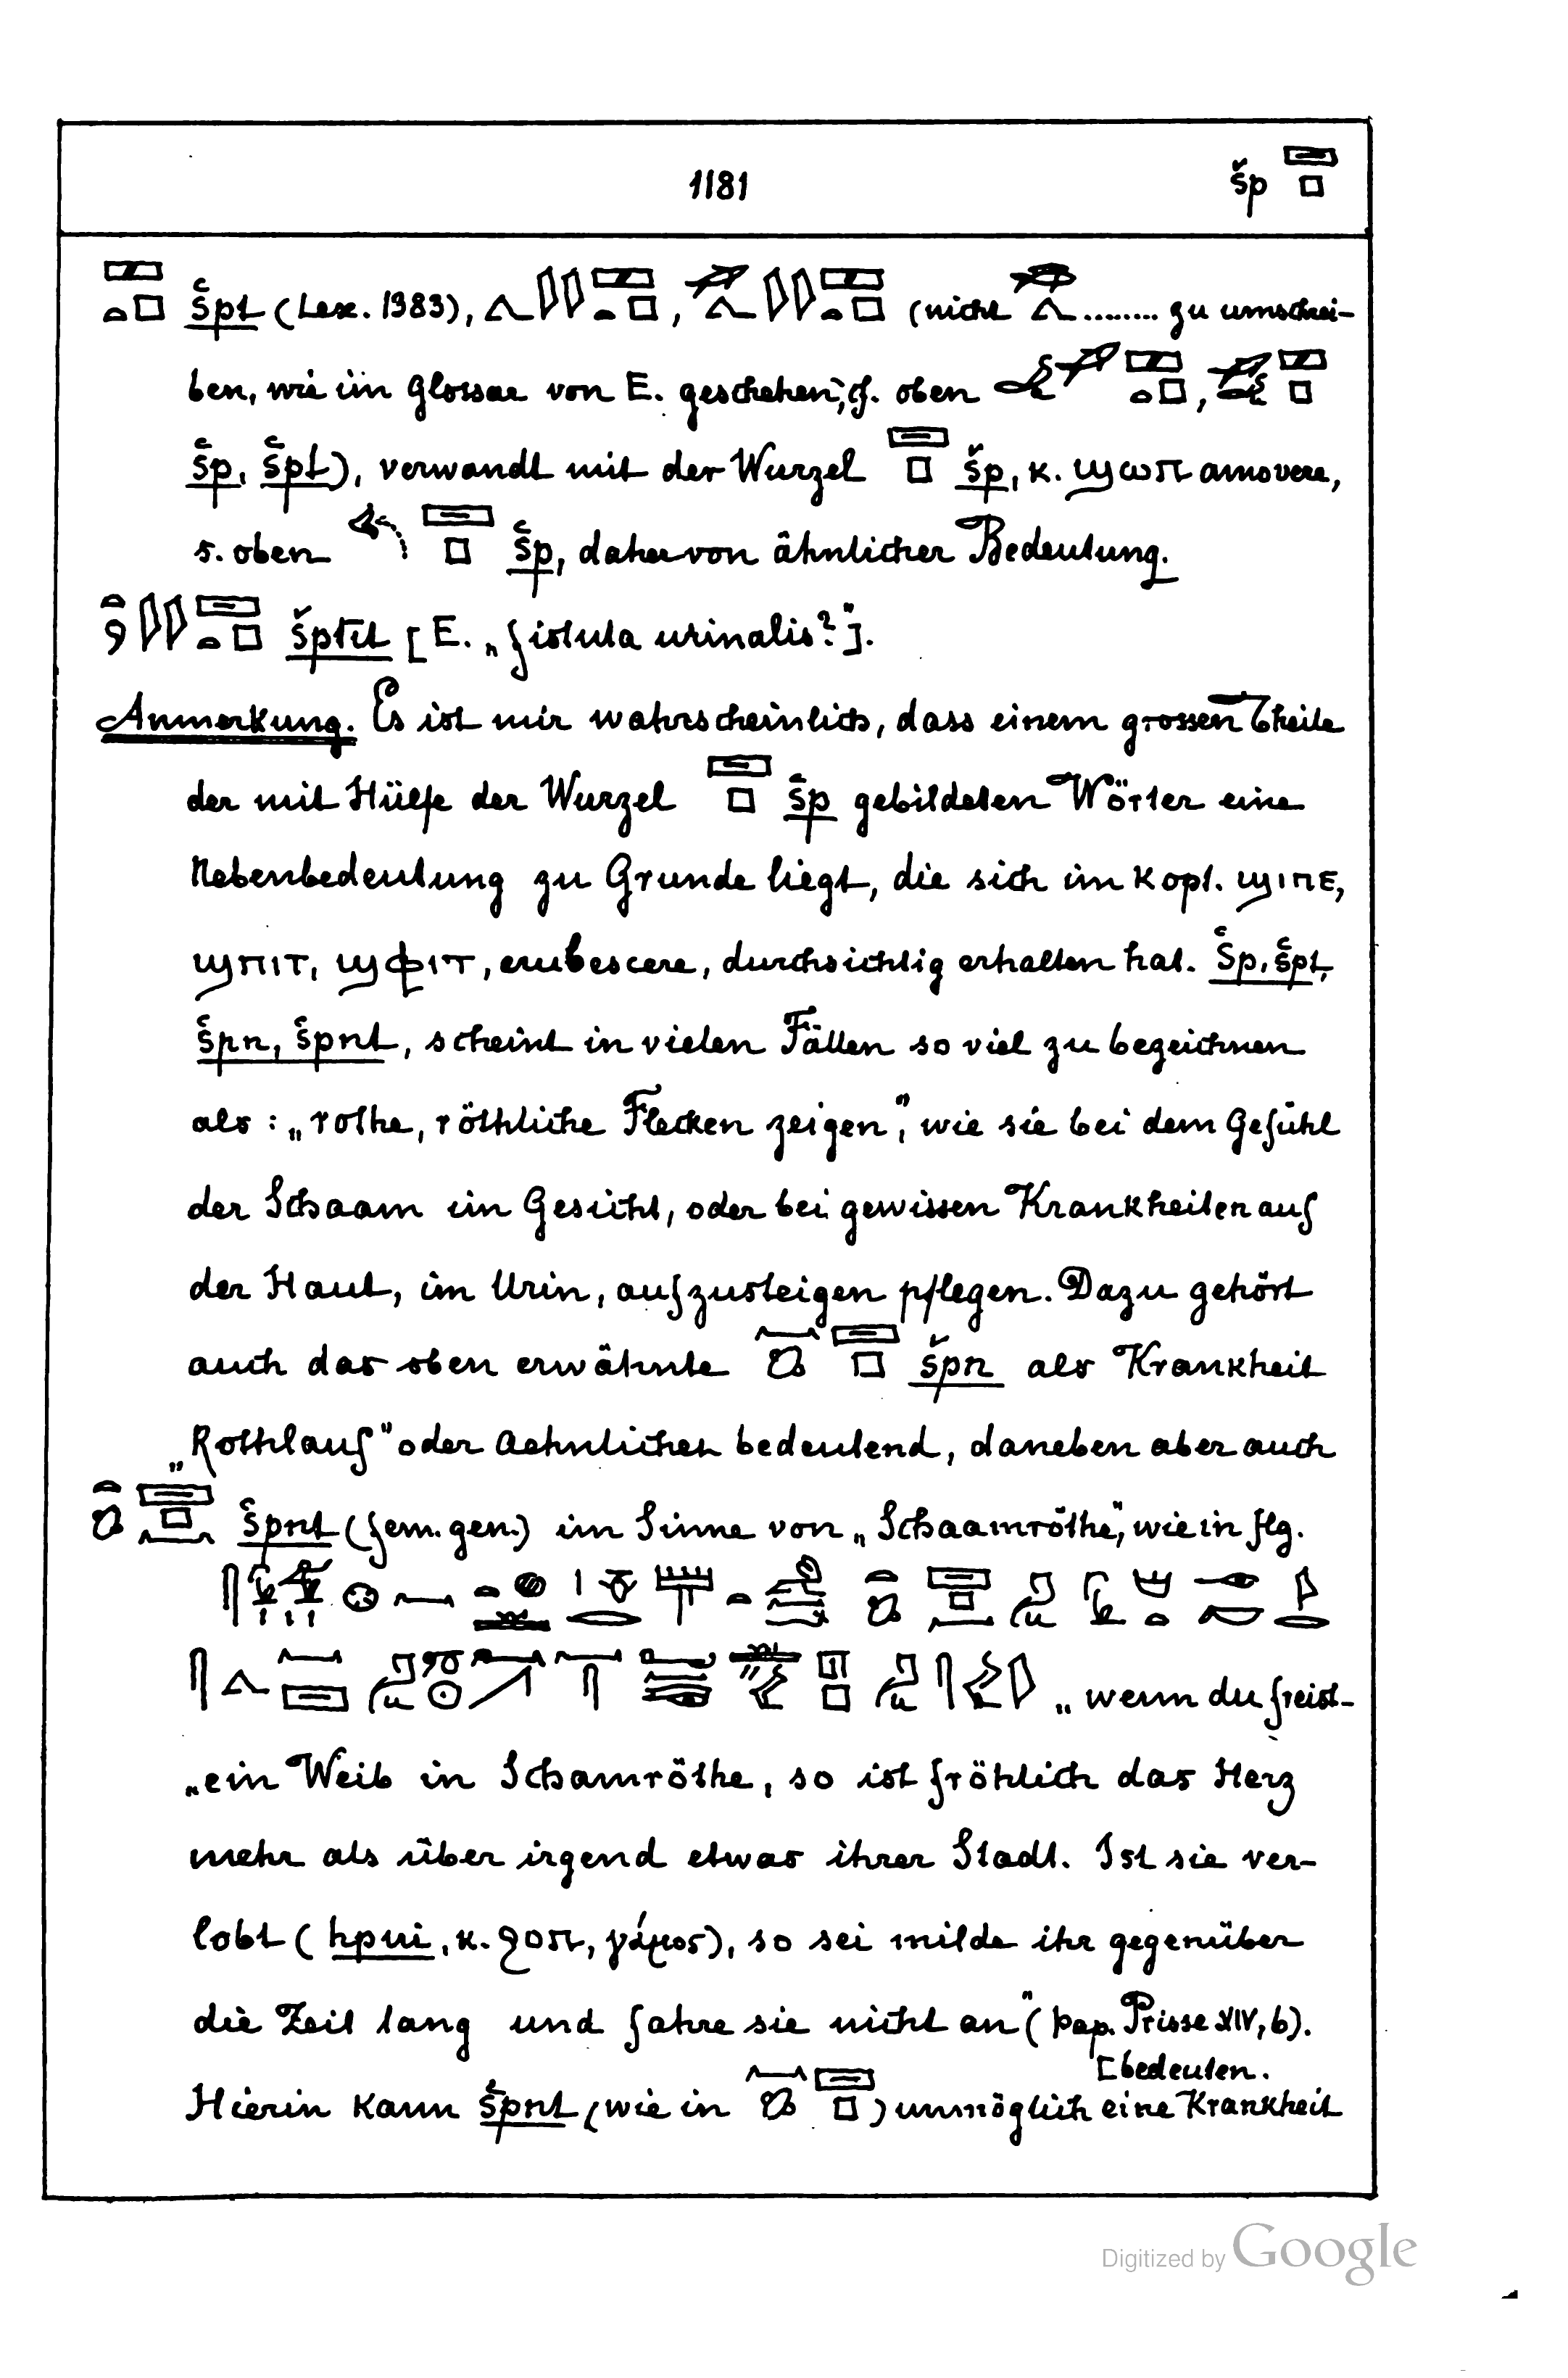 1181 šp
špt (Lex. 1383), , (nicht ........ zu umschrei-
ben, wie im Glossar von E. geschehen; cf. oben ,
šp, špt), verwandt mit der Wurzel šp, κ. ϣωπ amovere,
s. oben šp, daher von ähnlicher Bedeutung.
[E. „fistula urinalis?"].
Anmerkung. Es ist mir wahrscheinlich, dass einem grossen Theile
der mit Hülfe der Wurzel šp gebildeten Wörter eine
Nebenbedeutung zu Grunde liegt, die sich im Kopt. ϣιπε,
ϣπιτ, ϣφιτ, erubescere, durchsichtig erhalten hat. Šp, špt,
špn, špnt, scheint in vielen Fällen so viel zu bezeichnen
als: „rothe, röthliche Flecken zeigen", wie sie bei dem Gefühl
der Schaam im Gesicht, oder bei gewissen Krankheiten auf
der Haut, im Urin, aufzusteigen pflegen. Dazu gehört
auch das oben erwähnte špn als Krankheit
„Rothlauf" oder Aehnliches bedeutend, daneben aber auch
špnt (fem. gen.) im Sinne von „Schaamröthe", wie in flg.
„wenn du freist
„ein Weib in Schamröthe, so ist fröhlich das Herz
mehr als über irgend etwas ihrer Stadt. Ist sie ver-
lobt (hpui, κ. ϩοπ, γάμος), so sei milde ihr gegenüber
die Zeit lang und fahre sie nicht an" (Pap. Prisse XIV, 6).
Hierin kann špnt (wie in ) unmöglich eine Krankheit
[bedeuten.
Digitized by Google